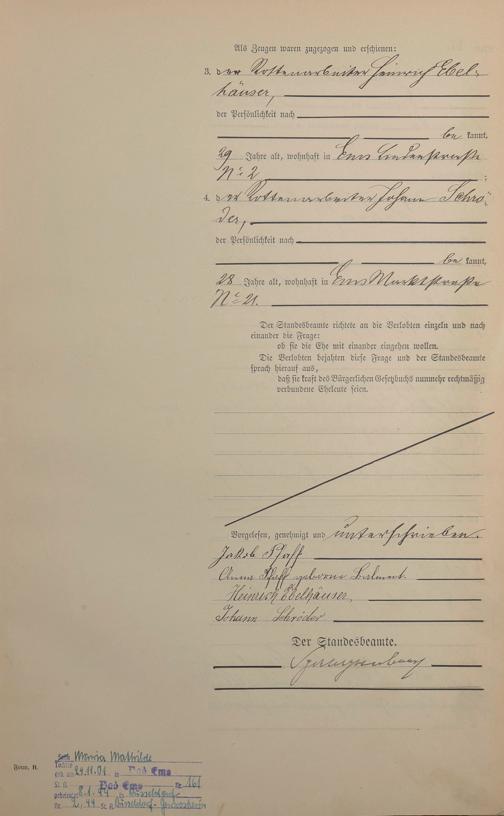 Als Zeugen waren zugezogen und erschienen:
3. der Rottenarbeiter Heinrich Ebel-
häuser,
der Persönlichkeit nach
be kannt,
29 Jahre alt, wohnhaft in Ems Lindenstraße
No 2
4. der Rottenarbeiter Johann Schrö-
der,
der Persönlichkeit nach
be kannt,
28 Jahre alt, wohnhaft in Ems Marktstraße
No 21.
Der Standesbeamte richtete an die Verlobten einzeln und nach
einander die Frage:
ob sie die Ehe mit einander eingehen wollen.
Die Verlobten bejahten diese Frage und der Standesbeamte
sprach hierauf aus,
daß sie kraft des Bürgerlichen Gesetzbuchs nunmehr rechtmäßig
verbundene Eheleute seien.
Vorgelesen, genehmigt und unterschrieben.
Jakob Pfaff
Anna Pfaff geborene
Heinrich Ebelhäuser.
Johann Schröder
Der Standesbeamte.
Form. B.
Maria Mathilde
Tochter
geb. am 24.11.01 in Bad Ems
St. A. Bad Ems Nr. 161
8.1.44 in Düsseldorf-
Nr. 2/44 St. A. Düsseldorf-Gerresheim